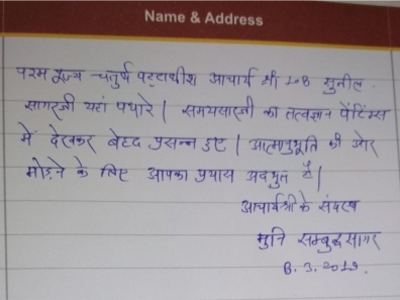 Name & Address
परम पूज्य चतुर्थ पट्टाधीश आचार्य श्री 108 सुनील
सागरजी यहां पधारे | समयसारजी का तत्वज्ञान पेंटिंग्स
में देखकर बेहद प्रसन्न हुए | आत्मानुभूति की ओर
मोड़ने के लिए आपका प्रयास अद्भुत है |
आचार्यश्री के संघस्थ
मुनि सम्बुद्धसागर
8.3.2019